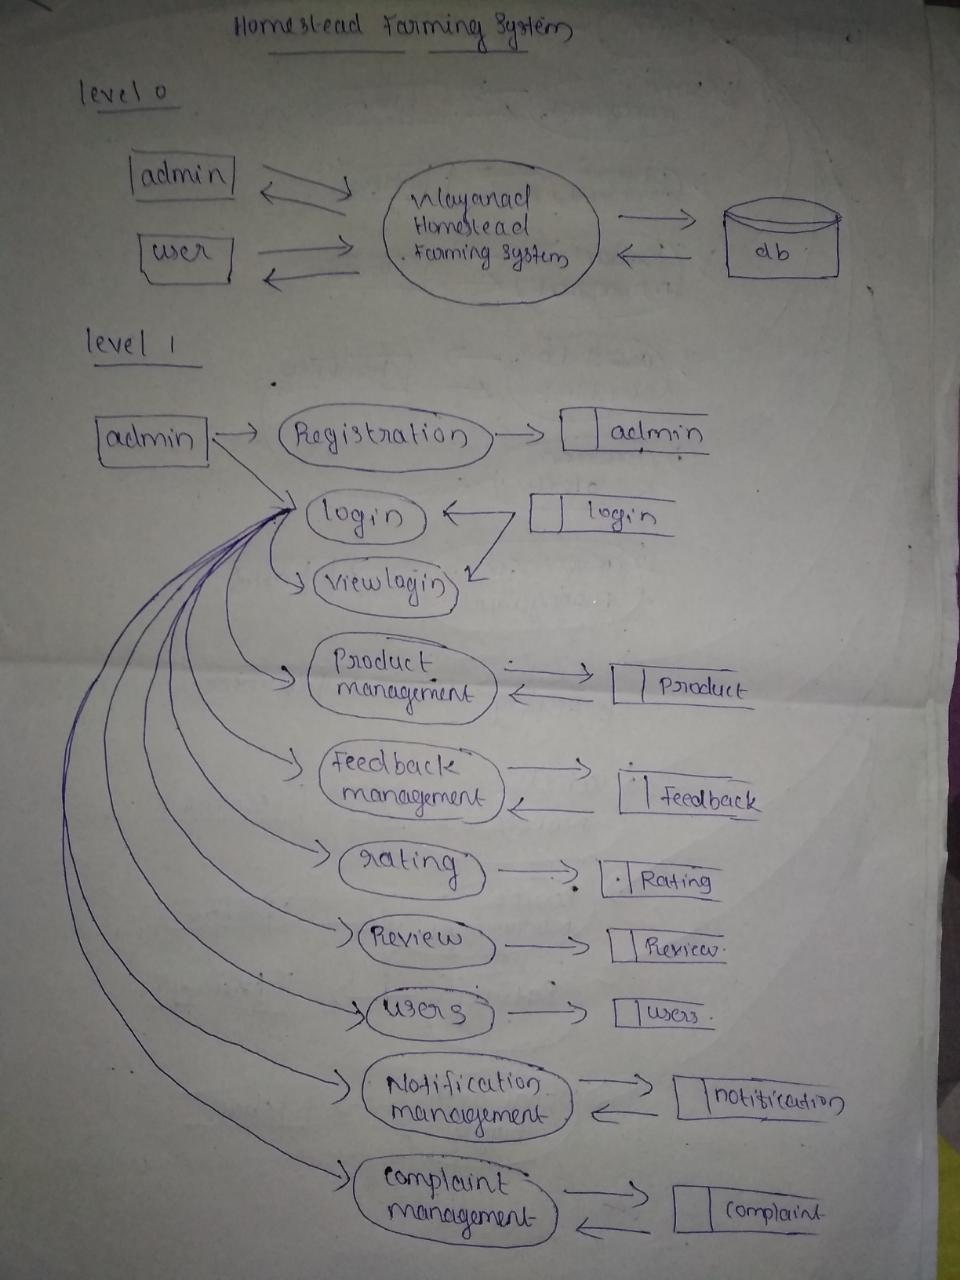 Homestead Farming System
level 0
admin
user
Wayanad
Homestead
Farming System
db
level 1
admin
Registration
admin
login
login
view login
Product
management
Product
Feedback
management
Feedback
rating
Rating
Review
Review
users
users
Notification
management
notification
complaint
management
complaint